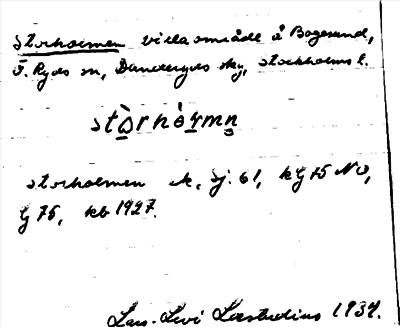 Storholmen villaområde å Bogesund,
Ö. Ryds sn, Danderyds skg, Stockholms l.
stòrhòrmn
Storholmen ek, bj. 61, kg 75 NO,
G 75, kb 1927.
Lars-Levi Læstadius 1934.